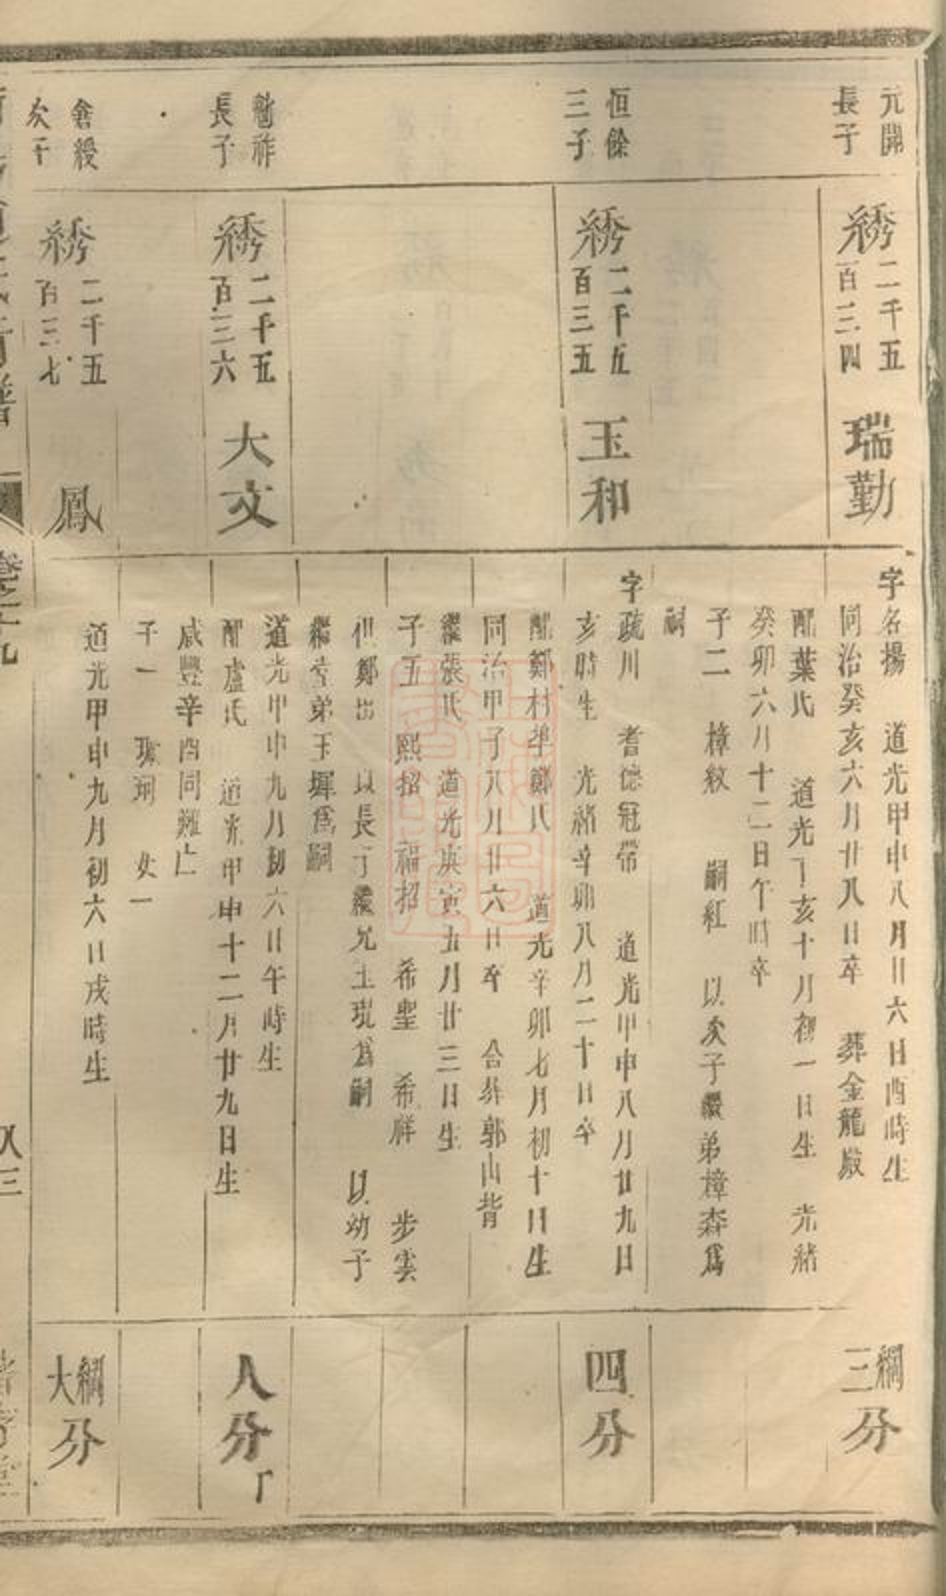 元開
長子
綉
二千五
百三四
瑞勤
字名揚 道光甲申八月廿六日酉時生
同治癸亥六月廿八日卒 葬金龍嚴
配葉氏 道光丁亥十月初一日生 光緒
癸卯六月十二日午時卒
子二 樟紋 嗣紅 以次子繼弟樟森爲
嗣
綱三分
恒餘
三子
綉
二千五
百三五
玉和
字疏川 耆德冠帶 道光甲申八月廿九日
亥時生 光緒辛卯八月二十日卒
配鄭村鄭氏 道光辛卯七月初十日生
同治甲子八月廿六日卒 合葬郭山背
繼張氏 道光庚寅五月廿三日生
子五 熙招 福招 希聖 希祥 步雲
但鄭出 以長子繼兄玉琨爲嗣 以幼子
繼堂弟玉墀爲嗣
四分
祚
長子
綉
二千五
百三六
大文
道光甲申九月初六日午時生
配盧氏 道光甲申十二月廿九日生
咸豐辛酉同難亡
子一 女一
八分
次子
綉
二千五
百三七
鳳
道光甲申九月初六日戌時生
綱大分
卷之十九
八三